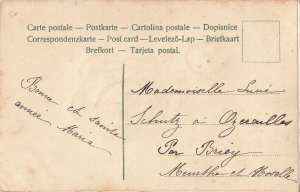 Carte postale – Postkarte – Cartolina postale – Dopisnice
Correspondenzkarte – Post card – Levelező-Lap – Briefkaart
Brefkort – Tarjeta postal.
Bonne et sainte
année Maria
Mademoiselle
Schutz à Ozerailles
Par Briey
Meurthe et Moselle